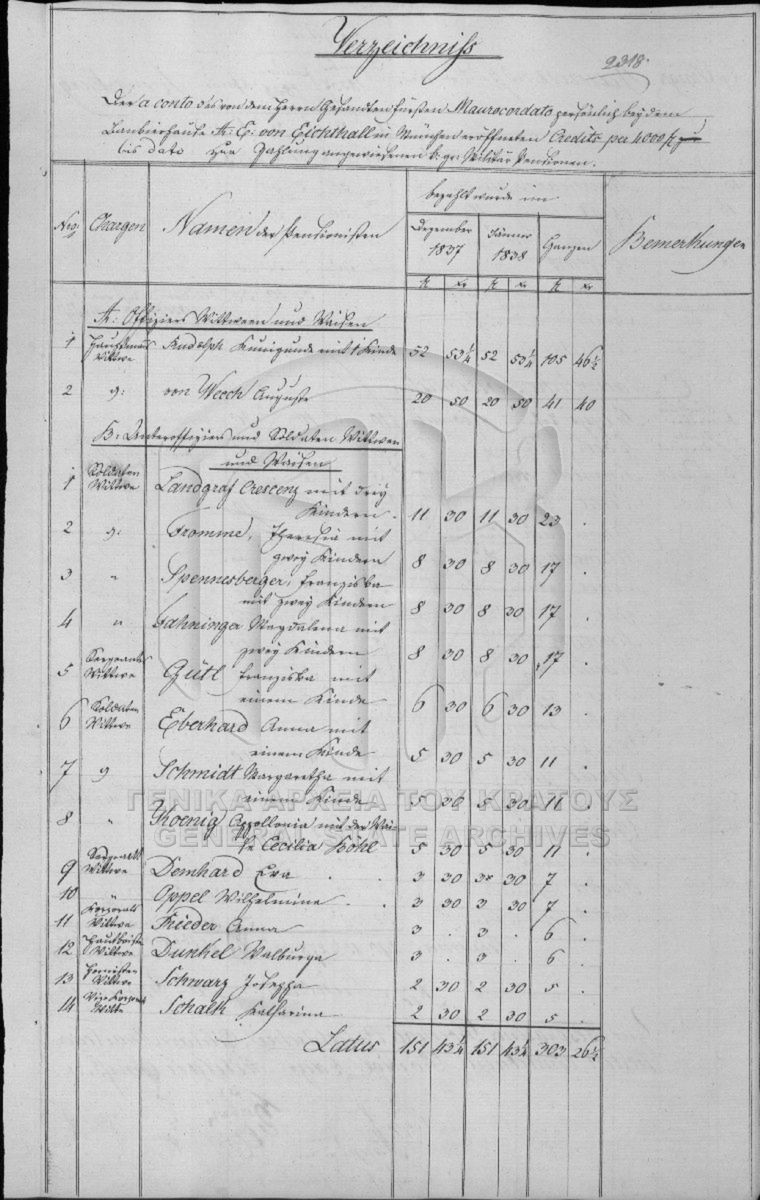 Verzeichniss
9318.
Der a conto des von dem Herrn Gesandten Fürsten Maurocordato persönlich bey dem
Banquierhause A: E: von Eichthall in München eröffneten Credits per 4000 fl
bis dato zur Zahlung angewiesenen k: gr: Militär Pensionen.
Nro: Chargen Namen der Pensionisten bezahlt wurde im Bemerkungen
Dezember 1837 Jänner 1838 Ganzen
fl xr fl xr fl xr
A: Offiziers Wittwen und Waisen
1 Hauptmanns Wittwe Rudolph Kunigunde mit 1 Kinde 52 53¼ 52 53¼ 105 46½
2 g: von Weech Auguste 20 50 20 50 41 40
B: Unteroffiziers und Soldaten Wittwen
und Waisen
1 Soldaten Wittwe Landgraf Crescenz mit drey
Kindern . 11 30 11 30 23 .
2 g: Fromme, Theresia mit
zwey Kindern 8 30 8 30 17 .
3 " Spennesberger, Franziska
mit zwey Kindern 8 30 8 30 17 .
4 " Fahninger Magdalena mit
zwey Kindern 8 30 8 30 17 .
5 Sergeants Wittwe Gütl Franziska mit
einem Kinde 6 30 6 30 13 .
6 Soldaten Wittwe Eberhard Anna mit
einem Kinde 5 30 5 30 11 .
7 g Schmidt Margaretha mit
einem Kinde 5 30 5 30 11 .
8 " Koenig Appollonia mit der Wai-
se Cecilia Höhl 5 30 5 30 11 .
9 Sergeants Wittwe Demhard Eva . . 3 30 3 30 7 .
10 " Appel Wilhelmine . . 3 30 3 30 7 .
11 Korporals Wittwe Frieder Anna 3 . 3 . 6 .
12 Hautboisten Wittwe Dunkel Walburga 3 . 3 . 6 .
13 Wittwe Schwarz Josepha 2 30 2 30 5 .
14 Vize Korporals Wittwe Schalk Katharina 2 30 2 30 5 .
Latus 151 43¼ 151 43¼ 303 26½
ΓΕΝΙΚΑ ΑΡΧΕΙΑ ΤΟΥ ΚΡΑΤΟΥΣ
GENERAL STATE ARCHIVES